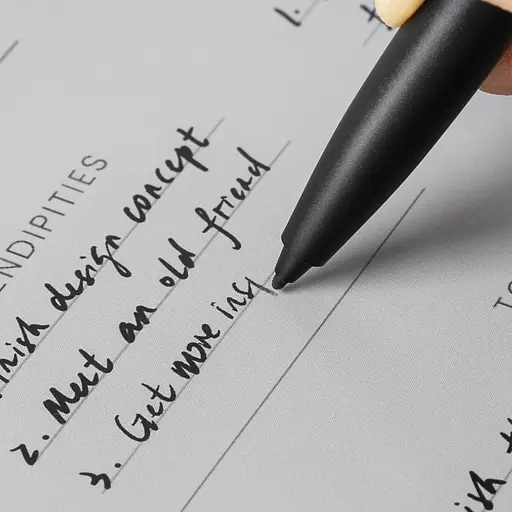 1.
NDIPITIES
nish design concept
2. Meet an old friend
3. Get more insp